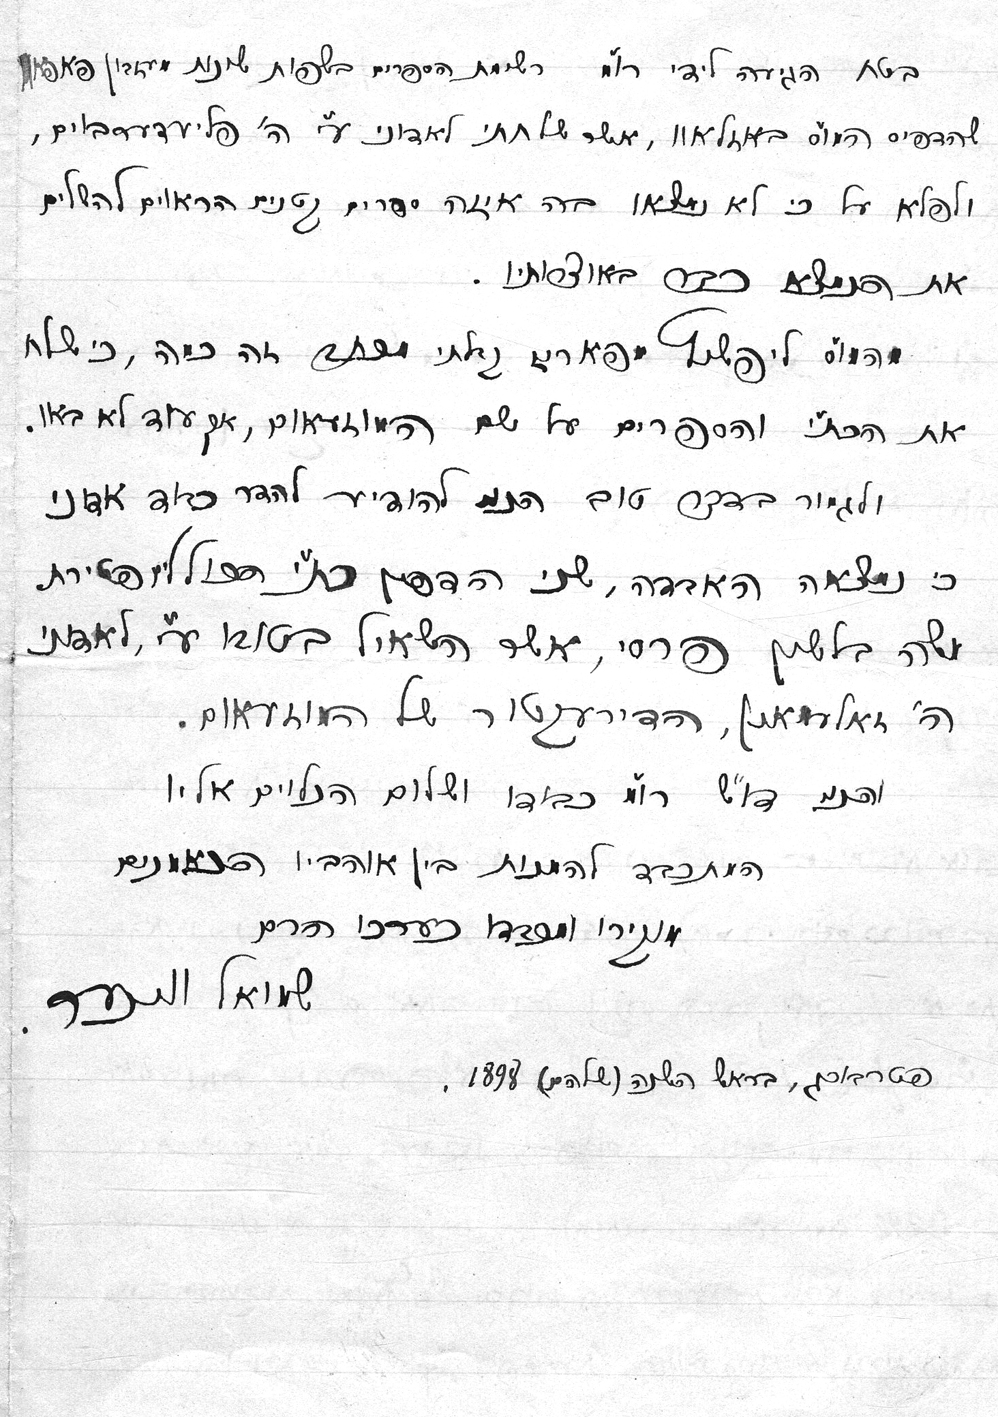 בטח הגיעה לידי רו"מ רשימת הספרים בשפות שונות מעזבון פאפאוו
שהדפיס המו"ס באזלאוו, אשר שלחתי לאדוני ע"י ה' פליעדערבוים,
ולפלא על כי לא נמצאו בה איזה ספרים קטנים הראוים להשלים
את הנמצא כבר באוצרותיו.
מהמו"ס ליפשיץ מפאריז קבלתי מכתב זה כמה, כי שלח
את הכת"י והספרים על שם המוזעאום, אך עוד לא באו.
ולגמור בדבר טוב הנני להודיע להדר כבוד אדוני
כי נמצאה האבדה, שני הדפים כת"י הכוללים פטירת
משה בלשון פרסי, אשר השאיל בטובו ע"י, לאדוני
ה' זאלעמאן, הדירעקטור של המוזעאום.
והנני דו"ש רו"מ כבודו ושלום הנלוים אליו
המתכבד להמנות בין אוהביו הנאמנים
מוקירו ומכבדו כערכו הרם
שמואל ווינער.
פטרבורג, בראש השנה (שלהם) 1898.